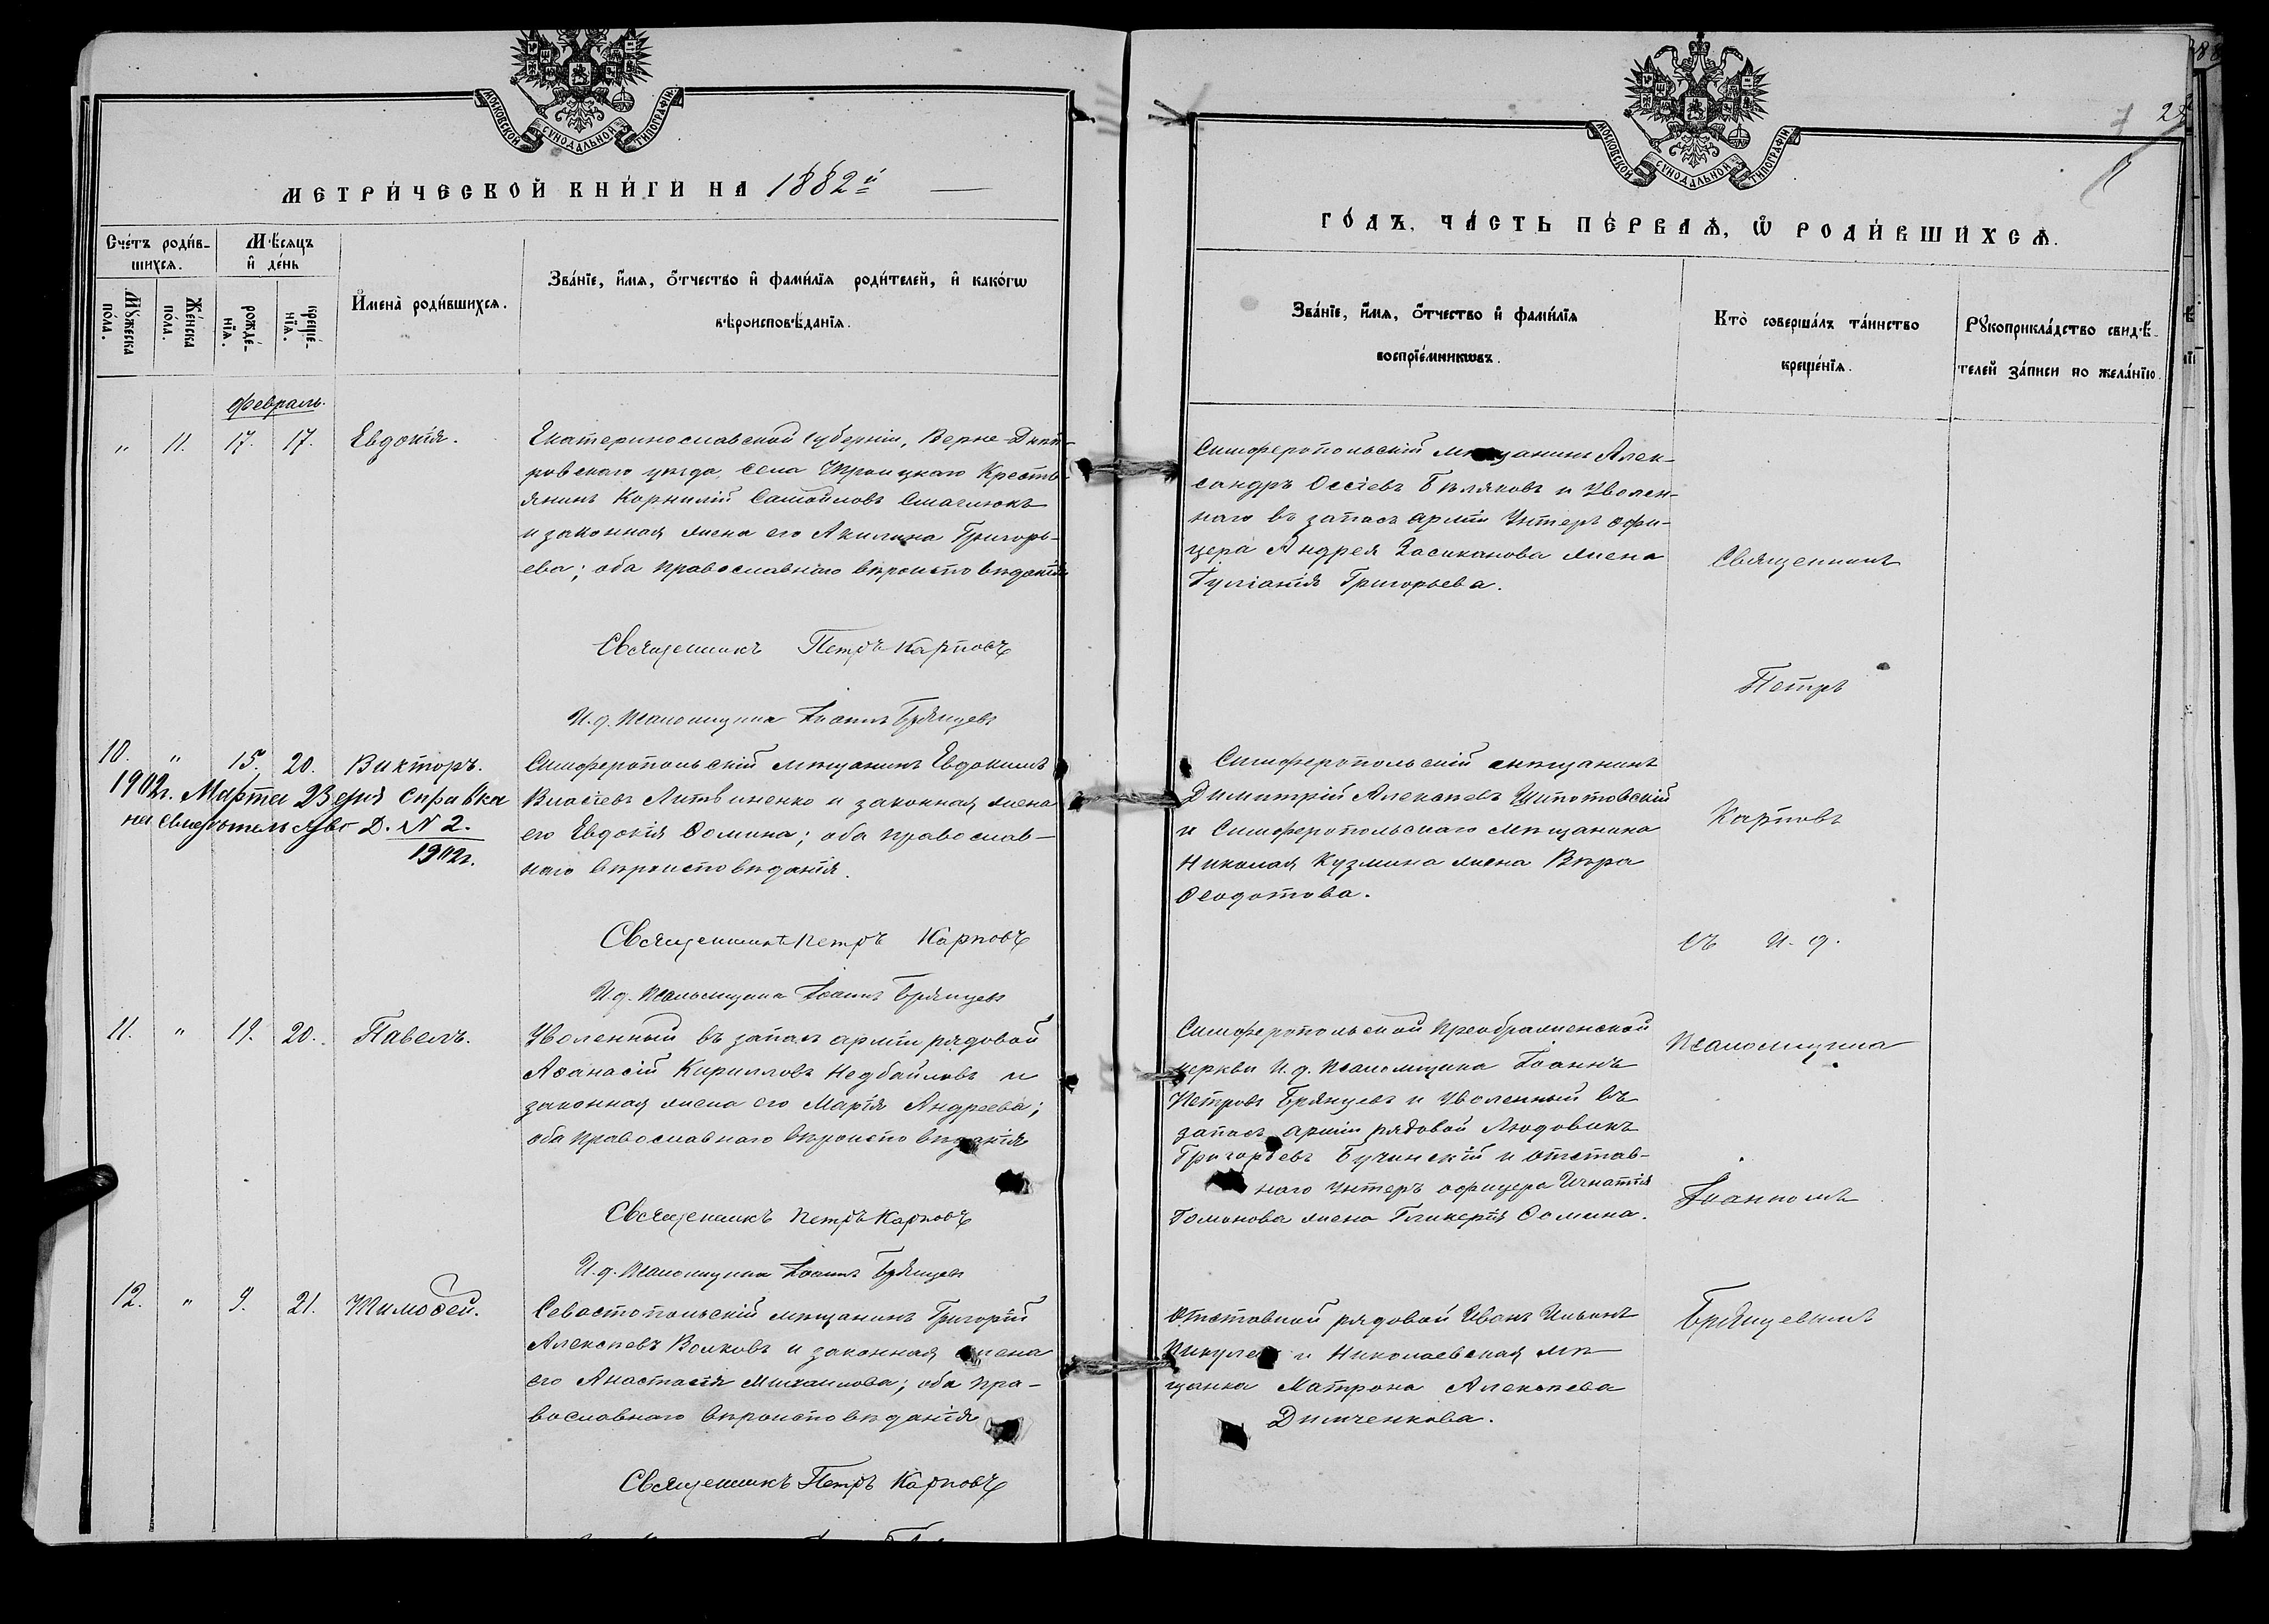 МОСКОВСКОЙ СѴНОДАЛЬНОЙ ТИПОГРАФІИ
МЕТРИ́ЧЕСКОЙ КНИ́ГИ НА 1882й
Сче́тъ роди́в-
шихсѧ.
Мѣ́сѧцъ
и҆ де́нь
Мꙋ́жеска
по́ла.
Же́нска
по́ла.
рожде́-
нїѧ.
креще́-
нїѧ.
И҆мена̀ роди́вшихсѧ.
Зва́нїе, и҆́мѧ, ѻ҆́тчество и҆ фами́лїѧ роди́телей, и҆ како́гѡ
вѣроисповѣ́данїѧ.
Февраль.
" 11. 17. 17. Евдокія.
Екатеринославской губерніи, Верхне-Днѣп-
ровскаго уѣзда, села Троицкаго Кресть-
янинъ Корнилій Самойловъ
и законная жена его Акилина Григорь-
ева; оба православнаго вѣроисповѣданія
Священникъ Петръ Карповъ
И. д. Псаломщика Іоаннъ Брянцевъ
10. " 15. 20. Викторъ.
Симферопольскій мѣщанинъ Евдокимъ
Власіевъ Литвиненко и законная жена
его Евдокія Ѳомина; оба православ-
наго вѣроисповѣданія.
1902г. Марта 23 дня справка
на свидѣтельство Д. № 2.
1902г.
Священникъ Петръ Карповъ
И. д. Псаломщика Іоаннъ Брянцевъ
11. " 19. 20. Павелъ.
Уволенный въ запасъ арміи рядовой
Аѳанасій Кирилловъ Недбайловъ и
законная жена его Марія Андреева;
оба православнаго вѣроисповѣданія
Священникъ Петръ Карповъ
И. д. Псаломщика Іоаннъ Брянцевъ
12. " 9. 21. Тимоѳей.
Севастопольскій мѣщанинъ Григорій
Алексѣевъ Волковъ и законная жена
его Анастасія Михаилова; оба пра-
вославнаго вѣроисповѣданія
Священникъ Петръ Карповъ
МОСКОВСКОЙ СѴНОДАЛЬНОЙ ТИПОГРАФІИ
ГО́ДЪ, ЧА́СТЬ ПЕ́РВАѦ, Ѡ҆ РОДИ́ВШИХСѦ.
Зва́нїе, и҆́мѧ, ѻ҆́тчество и҆ фами́лїѧ
воспрїе́мникѡвъ.
Кто̀ соверша́лъ та́инство
креще́нїѧ.
Рꙋкоприкла́дство свидѣ́-
телей за́писи по жела́нїю.
Симферопольскій мѣщанинъ Алек-
сандръ Оссіевъ Бѣляковъ и Уволен-
наго въ запасъ арміи Унтеръ офи-
цера Андрея Засиканова жена
Григорьева.
Симферопольскій мѣщанинъ
Димитрій Алексѣевъ Шпотовскій
и Симферопольскаго мѣщанина
Николая Кузмина жена Вѣра
Ѳеодотова.
Симферопольской Преображенской
церкви И. д. Псаломщика Іоаннъ
Петровъ Брянцевъ и Уволенный въ
запасъ арміи рядовой Людовикъ
Григорьевъ Бучинскій и отстав-
наго Унтеръ офицера Игнатія
Гоманова жена Гликерія Ѳомина.
Отставной рядовой Иванъ Ильинъ
и Николаевская мѣ-
щанка Матрона Алексѣева
Димченкова.
Священникъ
Петръ
Карповъ
съ И. д.
Псаломщика
Іоанномъ
Брянцевымъ